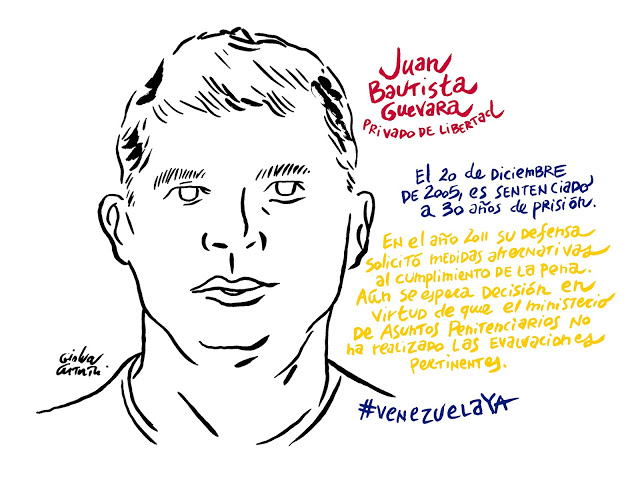 Juan
Bautista
Guevara
Privado de libertad
El 20 de Diciembre
de 2005, es sentenciado
a 30 años de prisión.
En el año 2011 su defensa
solicitó medidas alternativas
al cumplimiento de la pena.
Aún se espera decisión en
virtud de que el ministerio
de Asuntos Penitenciarios no
ha realizado las evaluaciones
pertinentes.
#venezuelaYA